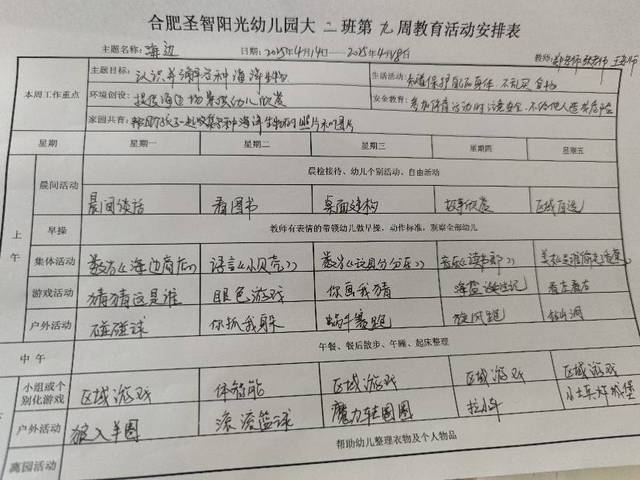 合肥圣智阳光幼儿园大二班第九周教育活动安排表
主题名称：海边 日期：2025年4月14日——2025年4月18日 教师：
本周工作重点 主题目标：认识并了解各种海洋生物 生活活动：知道保护自己身体 不乱吃食物
环境创设：提供海边场景供幼儿欣赏 安全教育：参加体育活动时注意安全
家园共育：帮助孩子一起收集各种海洋生物的照片和图片
星期 星期一 星期二 星期三 星期四 星期五
上午 晨间活动 晨检接待、幼儿个别活动，自由活动
晨间谈话 看图书 桌面建构 故事欣赏 区域自选
早操 教师有表情的带领幼儿做早操，动作标准，观察全部幼儿
集体活动 数学《海边商店》 语言《小贝壳》 数学《玩具分分乐》 音乐
游戏活动 猜猜这是谁 眼色游戏 你画我猜 看左看右
户外活动 碰碰球 你抓我躲 蜗牛赛跑 旋风跑 钻山洞
中午 午餐、餐后散步、午睡、起床整理
小组或个别化游戏 区域游戏 体智能 区域游戏 区域游戏 区域游戏
户外活动 狼入羊圈 滚滚篮球 魔力转圈圈 拉小车 小土车炸城堡
离园活动 帮助幼儿整理衣物及个人物品